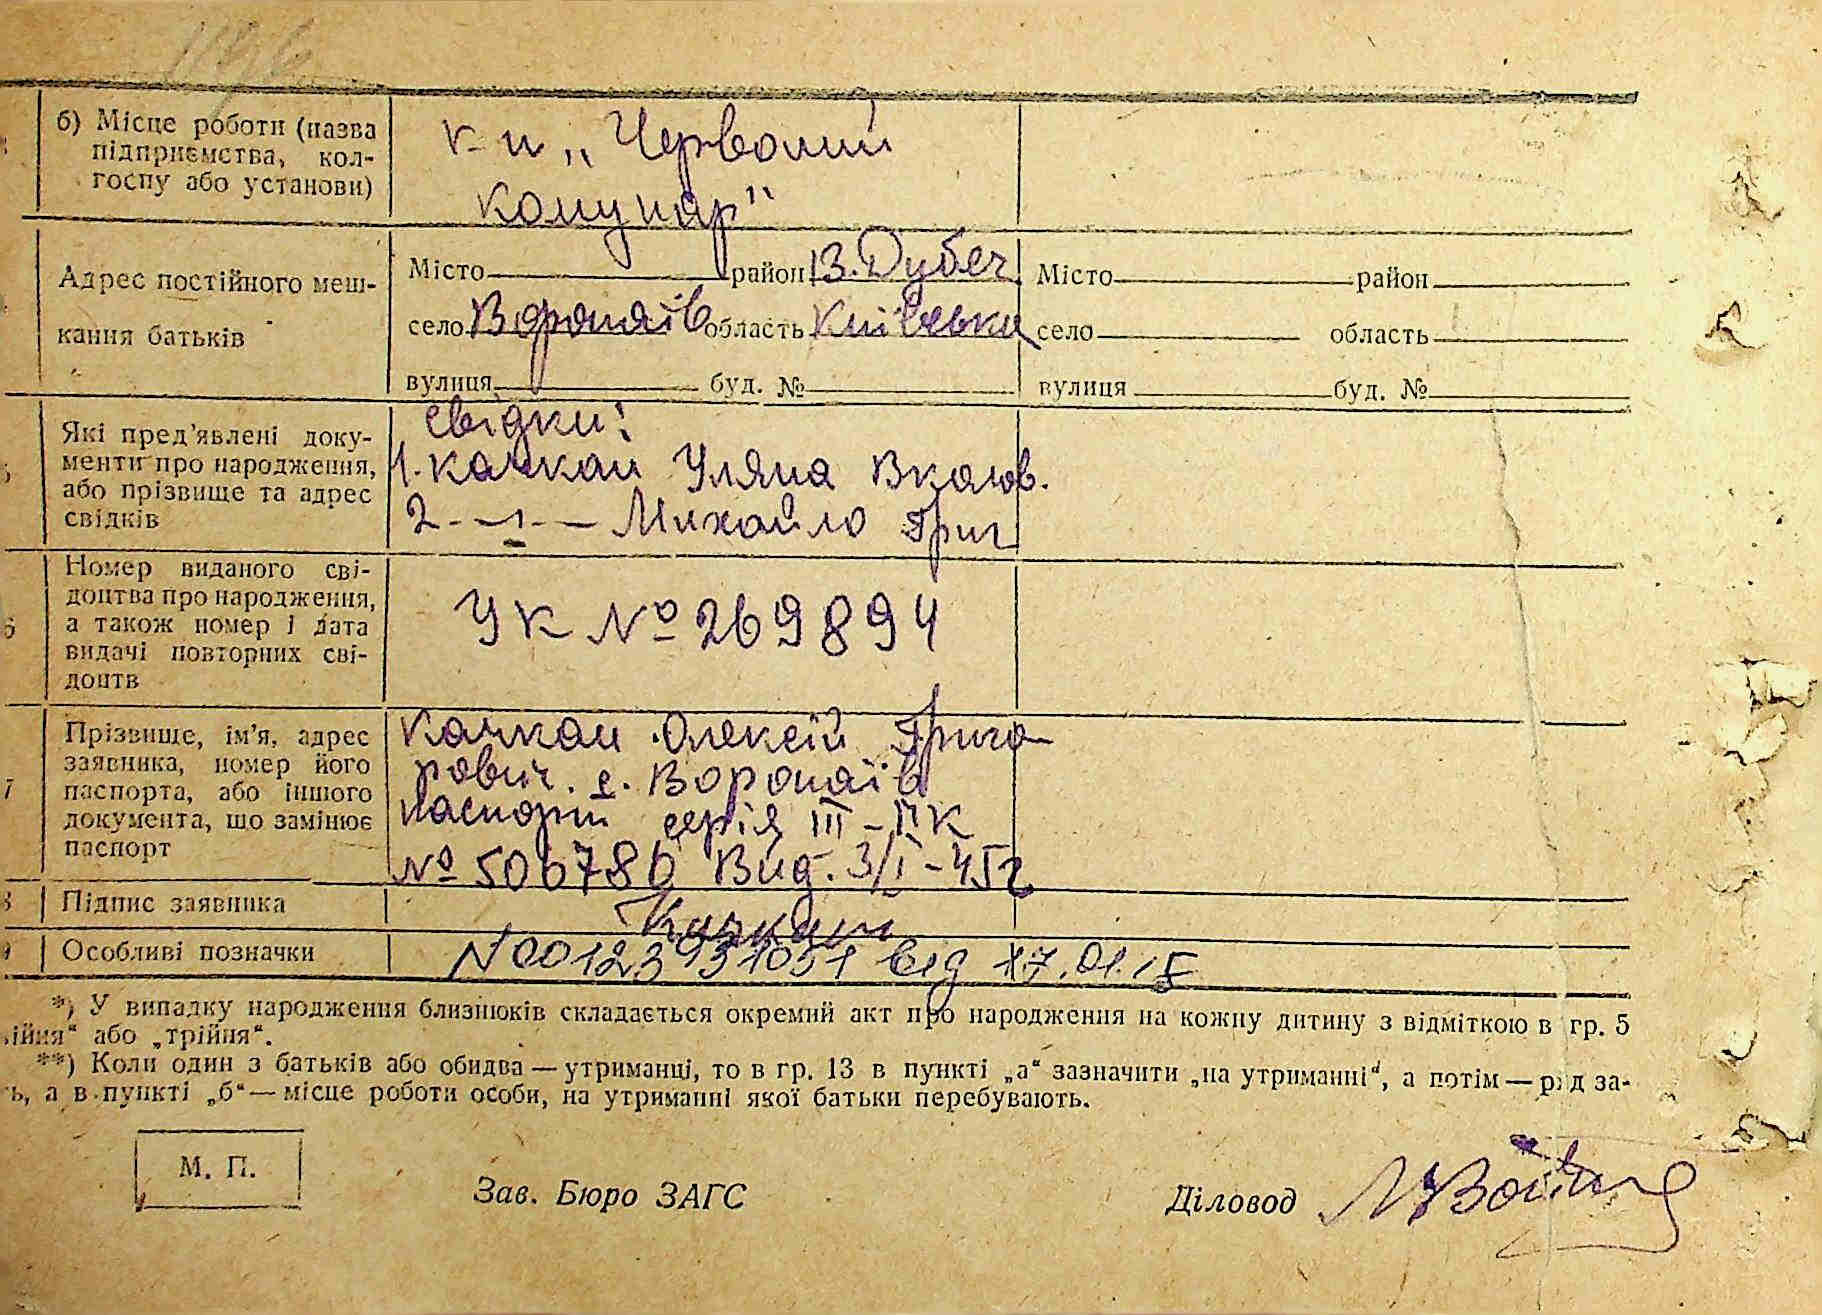 1196
б) Місце роботи (назва підприємства, кол-госпу або установи)
к-п „Червоний
Комунар"
Адрес постійного меш-
кання батьків
Місто район В. Дубеч Місто район
село Воропаїв область Київська село область
вулиця буд. № вулиця буд. №
Які пред'явлені доку-
менти про народження,
або прізвище та адрес
свідків
Свідки:
1. Качкан Уляна
2 -"- Михайло Григ
Номер виданого сві-
доцтва про народження,
а також номер і дата
видачі повторних сві-
доцтв
УК № 269894
Прізвище, ім'я, адрес
заявника, номер його
паспорта, або іншого
документа, що замінює
паспорт
Качкан Олексій Григо
рович. с. Воропаїв
Паспорт серія III-ПК
№ 506786 Вид. 3/I-45г
Підпис заявника
Качкан
Особливі позначки
N00123931051 від 17.01.
*) У випадку народження близнюків складається окремий акт про народження на кожну дитину з відміткою в гр. 5
ійня" або „трійня".
**) Коли один з батьків або обидва — утриманці, то в гр. 13 в пункті „а" зазначити „на утриманні", а потім — рід за-
ь, а в пункті „б" — місце роботи особи, на утриманні якої батьки перебувають.
М. П.
Зав. Бюро ЗАГС
Діловод